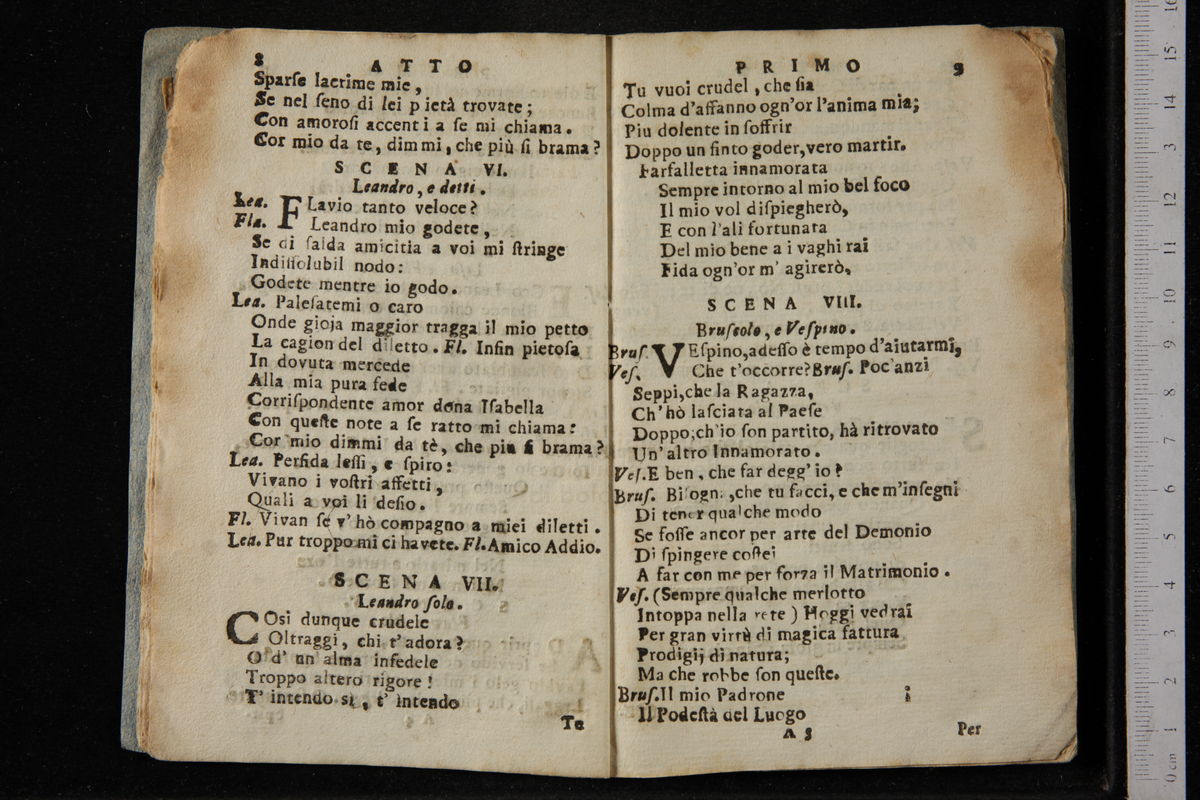 8 ATTO
Sparſe lacrime mie,
Se nel ſeno di lei pietà trovate;
Con amoroſi accenti a ſe mi chiama.
Cor mio da te, dimmi, che più ſi brama?
SCENA VI.
Leandro, e detti.
Lea. FLavio tanto veloce?
Fla. Leandro mio godete,
Se di ſalda amicitia a voi mi ſtringe
Indiſſolubil nodo:
Godete mentre io godo.
Lea. Paleſatemi o caro
Onde gioja maggior tragga il mio petto
La cagion del diletto. Fl. Infin pietoſa
In dovuta mercede
Alla mia pura fede
Corriſpondente amor dona Iſabella
Con queſte note a ſe ratto mi chiama:
Cor mio dimmi da tè, che piu ſi brama?
Lea. Perfida leſſi, e ſpiro:
Vivano i voſtri affetti,
Quali a voi li deſio.
Fl. Vivan ſe v'hò compagno a miei diletti.
Lea. Pur troppo mi ci havete. Fl. Amico Addio.
SCENA VII.
Leandro ſolo.
COsi dunque crudele
Oltraggi, chi t'adora?
O d'un'alma infedele
Troppo altero rigore!
T'intendo sì, t'intendo
Tu
PRIMO 9
Tu vuoi crudel, che ſia
Colma d'affanno ogn'or l'anima mia;
Piu dolente in ſoffrir
Doppo un finto goder, vero martir.
Farfalletta innamorata
Sempre intorno al mio bel foco
Il mio vol diſpiegherò,
E con l'ali fortunata
Del mio bene a i vaghi rai
Fida ogn'or m'agirerò.
SCENA VIII.
Bruſcolo, e Veſpino.
Bruſ. VEſpino, adeſſo è tempo d'aiutarmi,
Veſ. Che t'occorre? Bruſ. Poc'anzi
Seppi, che la Ragazza,
Ch'hò laſciata al Paeſe
Doppo; ch'io ſon partito, hà ritrovato
Un'altro Innamorato.
Veſ. E ben, che far degg'io?
Bruſ. Biſogna, che tu facci, e che m'inſegni
Di tener qualche modo
Se foſſe ancor per arte del Demonio
Di ſpingere coſtei
A far con me per forza il Matrimonio.
Veſ. (Sempre qualche merlotto
Intoppa nella rete) Hoggi vedrai
Per gran virtù di magica fattura
Prodigij di natura;
Ma che robbe ſon queſte.
Bruſ. Il mio Padrone
Il Podeſtà del Luogo
A 5 Per